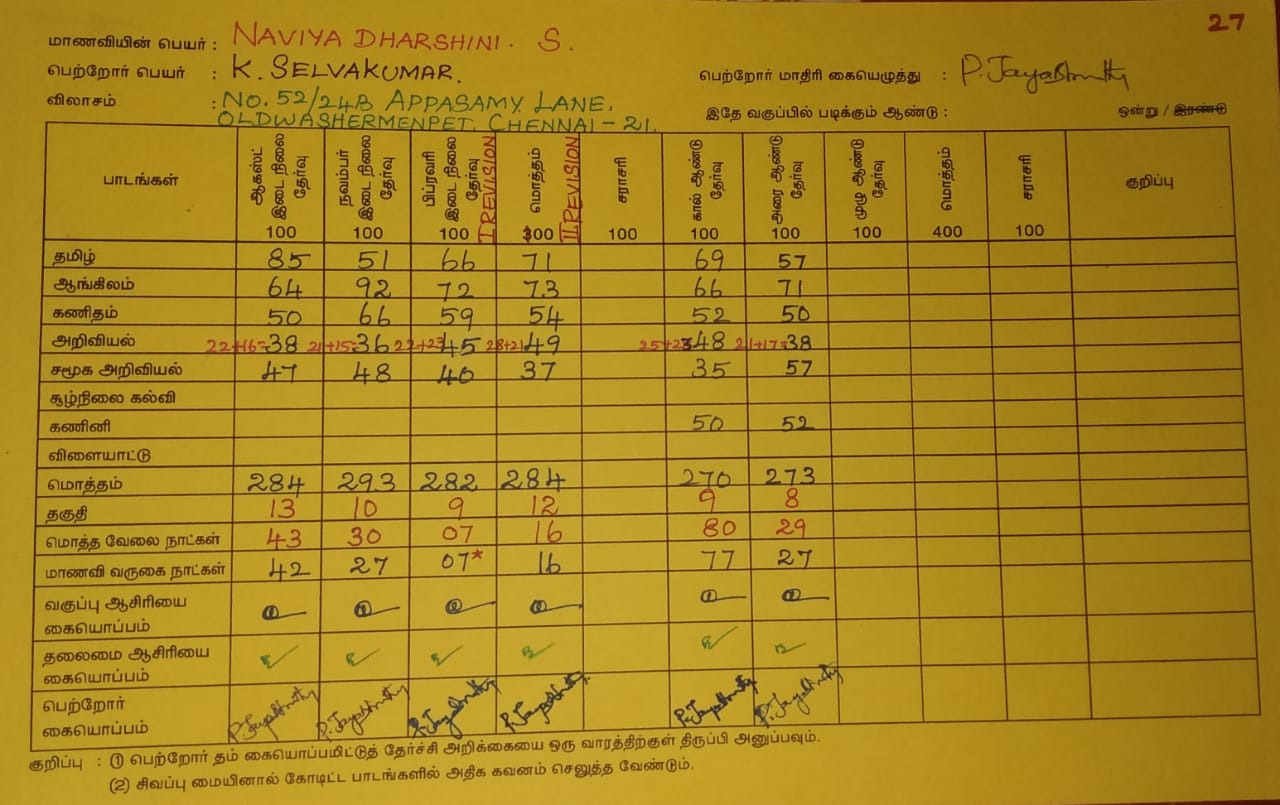 27
மாணவியின் பெயர் : NAVIYA DHARSHINI. S.
பெற்றோர் பெயர் : K. SELVAKUMAR. பெற்றோர் மாதிரி கையெழுத்து :
விலாசம் : NO. 52/24B APPASAMY LANE, இதே வகுப்பில் படிக்கும் ஆண்டு : ஒன்று / இரண்டு
OLDWASHERMENPET, CHENNAI - 21.
பாடங்கள் ஆகஸ்ட் இடை நிலை தேர்வு 100 நவம்பர் இடை நிலை தேர்வு 100 பிப்ரவரி இடை நிலை தேர்வு 100 I REVISION மொத்தம் 300 II REVISION சராசரி 100 கால் ஆண்டு தேர்வு 100 அரை ஆண்டு தேர்வு 100 முழு ஆண்டு தேர்வு 100 மொத்தம் 400 சராசரி 100 குறிப்பு
தமிழ் 85 51 66 71 69 57
ஆங்கிலம் 64 92 72 73 66 71
கணிதம் 50 66 59 54 52 50
அறிவியல் 22+16=38 21+15=36 22+23 45 28+21 49 25+23 48 21+17=38
சமூக அறிவியல் 47 48 40 37 35 57
சூழ்நிலை கல்வி
கணினி 50 52
விளையாட்டு
மொத்தம் 284 293 282 284 270 273
தகுதி 13 10 9 12 9 8
மொத்த வேலை நாட்கள் 43 30 07 16 80 29
மாணவி வருகை நாட்கள் 42 27 07* 16 77 27
வகுப்பு ஆசிரியை
கையொப்பம்
தலைமை ஆசிரியை
கையொப்பம்
பெற்றோர்
கையொப்பம்
குறிப்பு : (1) பெற்றோர் தம் கையொப்பமிட்டுத் தேர்ச்சி அறிக்கையை ஒரு வாரத்திற்குள் திருப்பி அனுப்பவும்.
(2) சிவப்பு மையினால் கோடிட்ட பாடங்களில் அதிக கவனம் செலுத்த வேண்டும்.